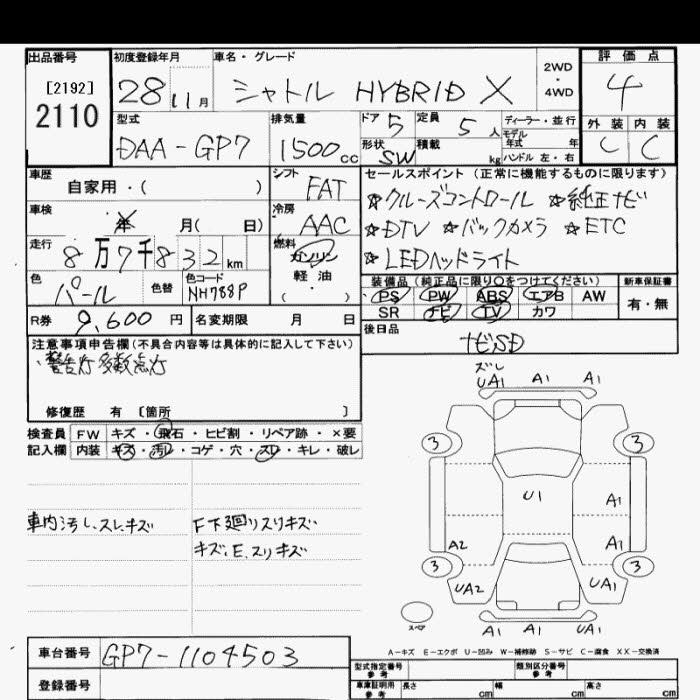 出品番号 初度登録年月 車名・グレード 2WD・4WD 評価点
[2192] 2110 28 11月 シャトル HYBRID X 4
型式 排気量 ドア 5 定員 5人 ディーラー・並行 外装 内装
DAA-GP7 1500cc 形状 SW 積載 kg モデル年式 年 ハンドル 左・右 C C
車歴 自家用・( ) シフト FAT セールスポイント (正常に機能するものに限ります)
車検 年 月( 日) 冷房 AAC ☆クルーズコントロール ☆純正ナビ
☆DTV ☆バックカメラ ☆ETC
走行 8万7千832km 燃料 ガソリン 軽油・( ) ☆LEDヘッドライト
色 パール 色替 色コード NH788P
装備品 (純正品に限り○をつけてください) 新車保証書
PS PW ABS エアB AW 有・無
SR ナビ TV カワ
R券 9,600円 名変期限 月 日
後日品 ナビSD
注意事項申告欄(不具合内容等は具体的に記入して下さい)
・警告灯多数点灯
修復歴 有 [箇所 ]
検査員 FW キズ・飛石・ヒビ割・リペア跡・×要
記入欄 内装 キズ・汚レ・コゲ・穴・スレ・キレ・破レ
車内汚し、スレ、キズ F下廻りスリキズ
キズ、E、スリキズ
ズレ
UA1 A1 A1
3 3
U1 A1
A2 A1
3 3
UA2 UA1
スペア A1 A1 UA1
A-キズ E-エクボ U-凹み W-補修跡 S-サビ C-腐食 XX-交換済
車台番号 GP7-1104503
型式指定番号 参考 類別区分番号 参考
登録番号
車庫証明用 参考 長さ cm 幅 cm 高さ cm